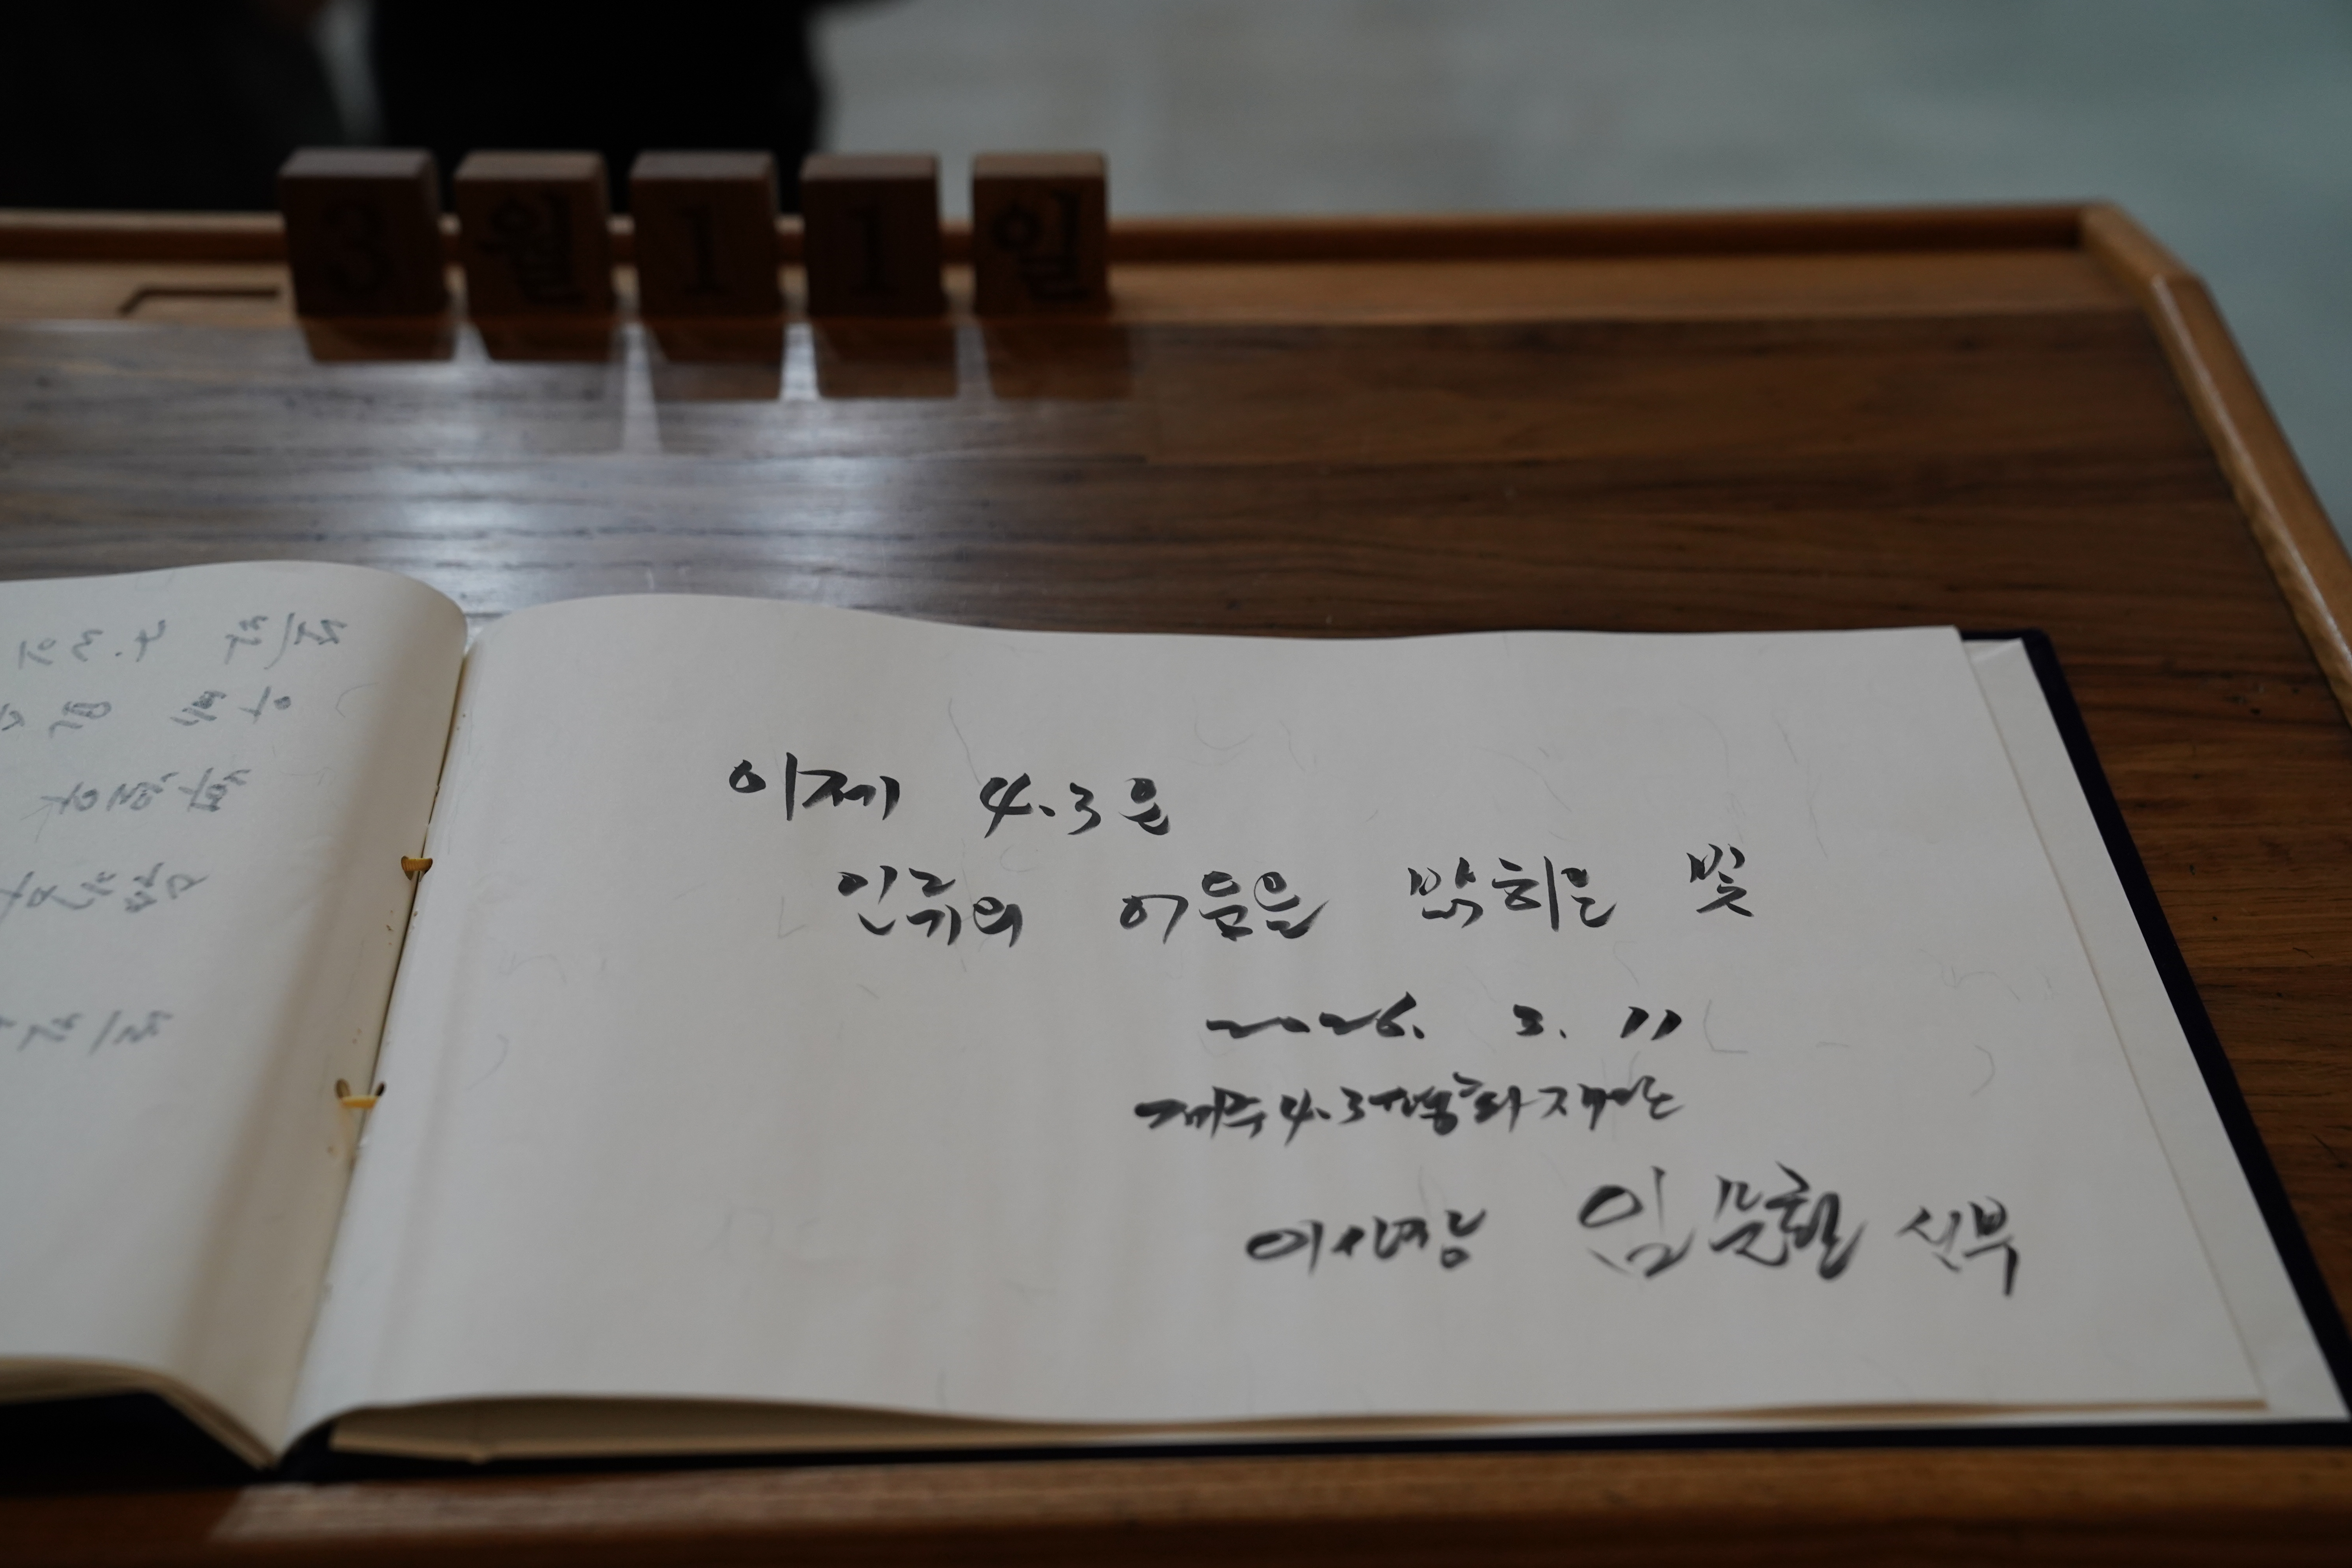 3월11일
이제 4.3은
인류의 어둠을 밝히는 빛
2026. 3. 11
제주4.3평화재단
이사장 임문철 신부